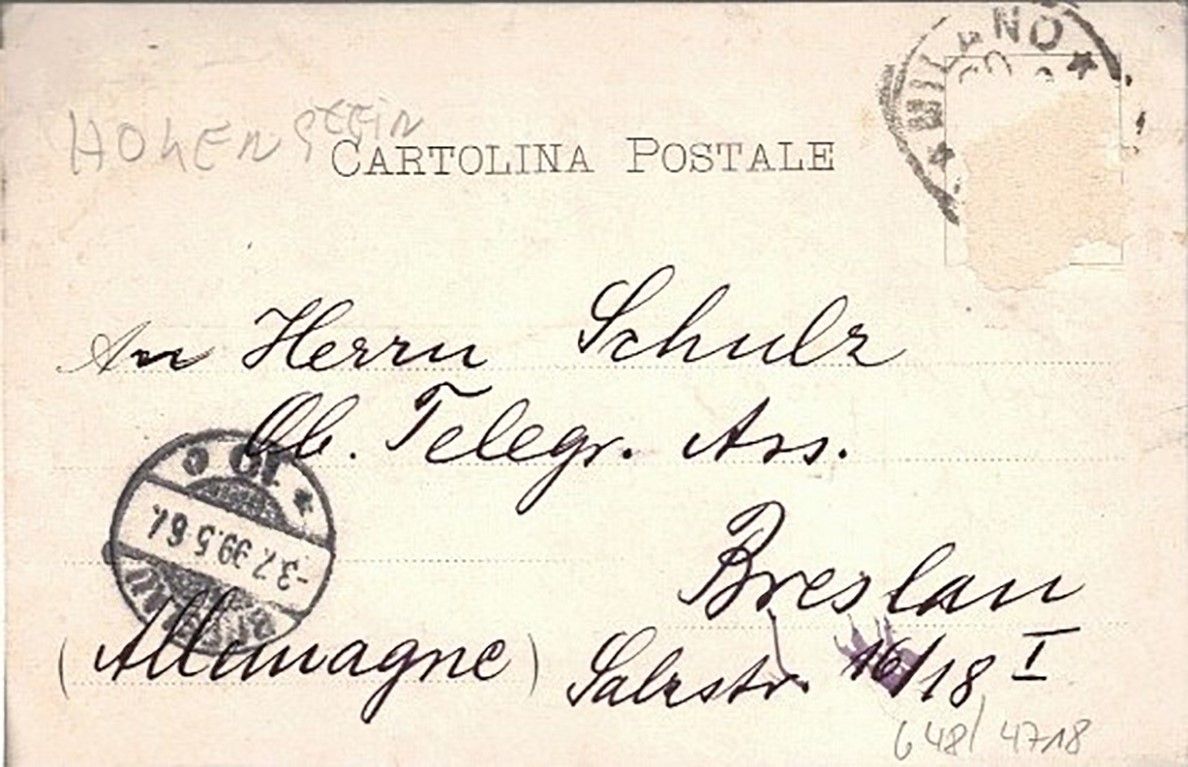 MILANO
HOHENSTEIN
CARTOLINA POSTALE
An Herrn Schulz
Ob. Telegr. Ass.
Breslau
(Allemagne) Salzstr. 16/18 I
BRESLAU
-3.7.99.5-6V.
10 c
648/4718